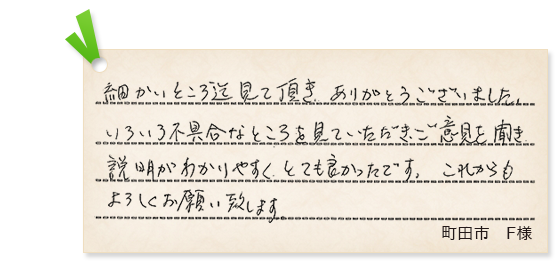 細かいところ迄見て頂き、ありがとうございました。
いろいろ不具合なところを見ていただきご意見を聞き
説明がわかりやすく、とても良かったです。これからも
よろしくお願い致します。
町田市　F様